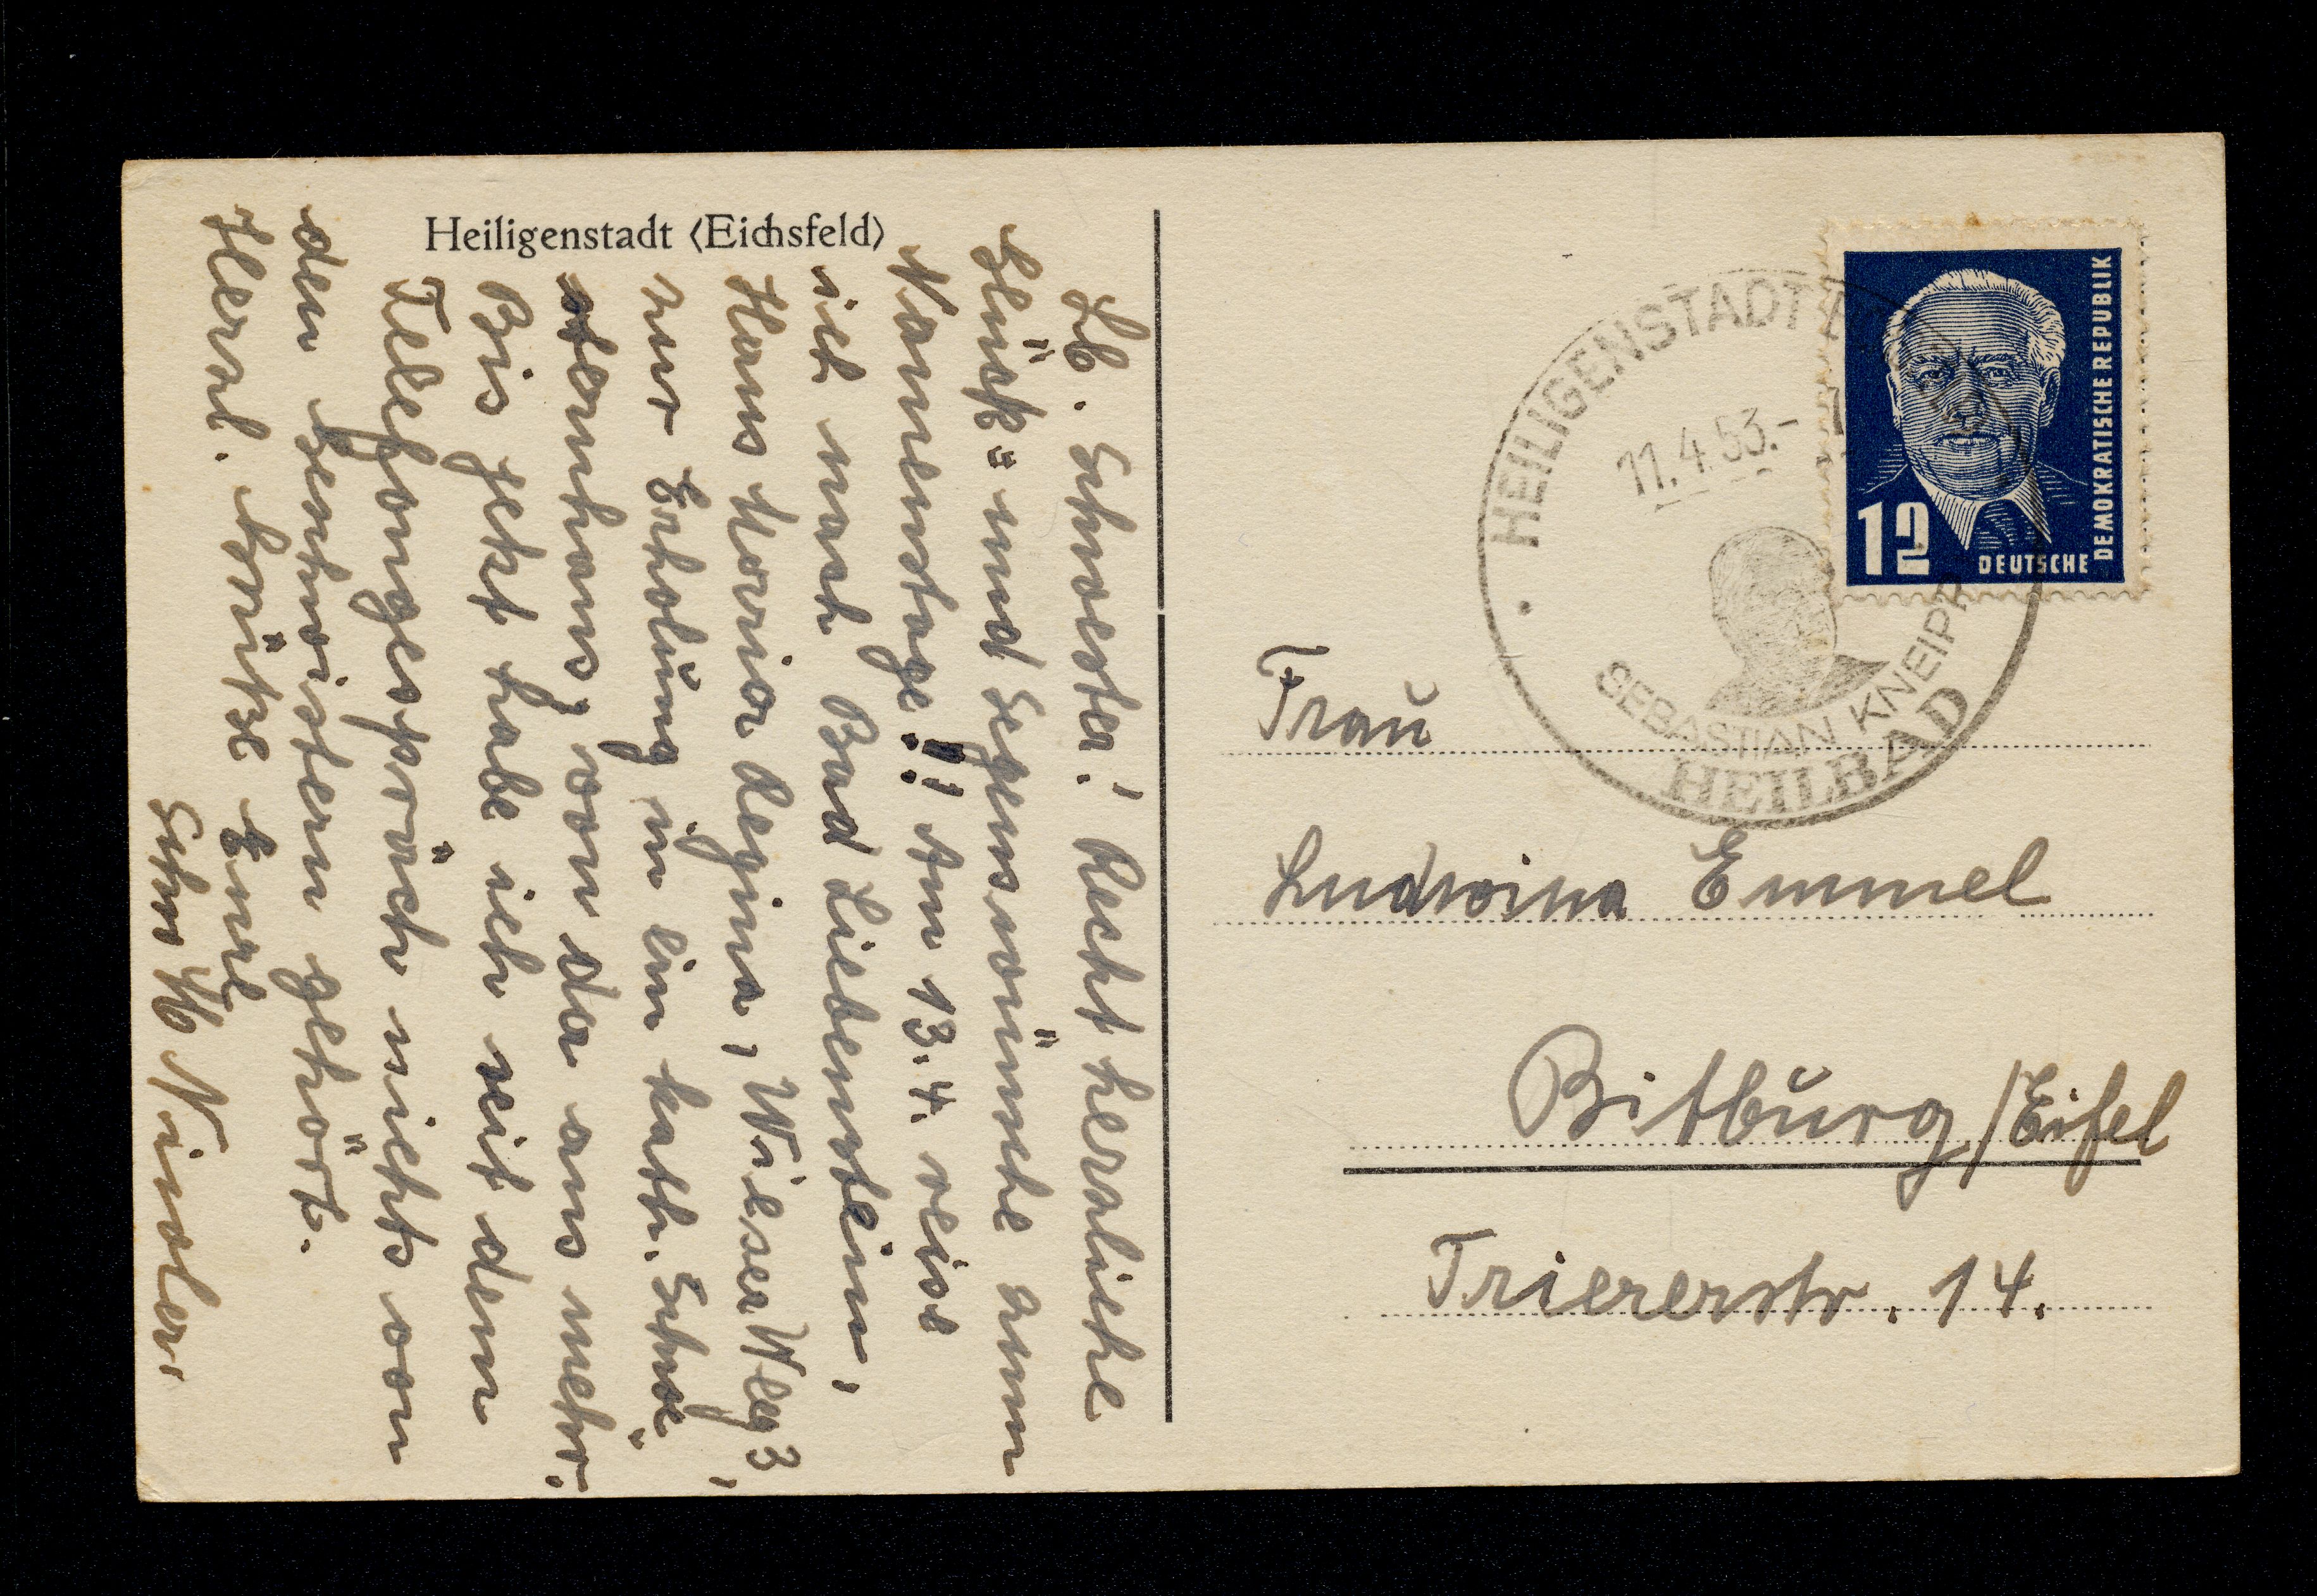 Heiligenstadt (Eichsfeld)
Lb. Schwester! Recht herzliche
Glück- und Segenswünsche zum
Namenstage!! Am 13.4. reise
ich nach Bad Liebenstein,
Haus Maria Regina, Wieser Weg 3,
zur Erholung in ein kath. Schwe-
sternhaus, von da aus mehr.
Bis jetzt habe ich seit dem
Telefongespräch nichts von
den Geschwistern gehört.
Herzl. Grüße Eure
Schw. M.
HEILIGENSTADT
11.4.53.-
SEBASTIAN KNEIPP
HEILBAD
12
DEUTSCHE
DEMOKRATISCHE REPUBLIK
Frau
Ludwina Emmel
Bitburg/Eifel
Triererstr. 14.